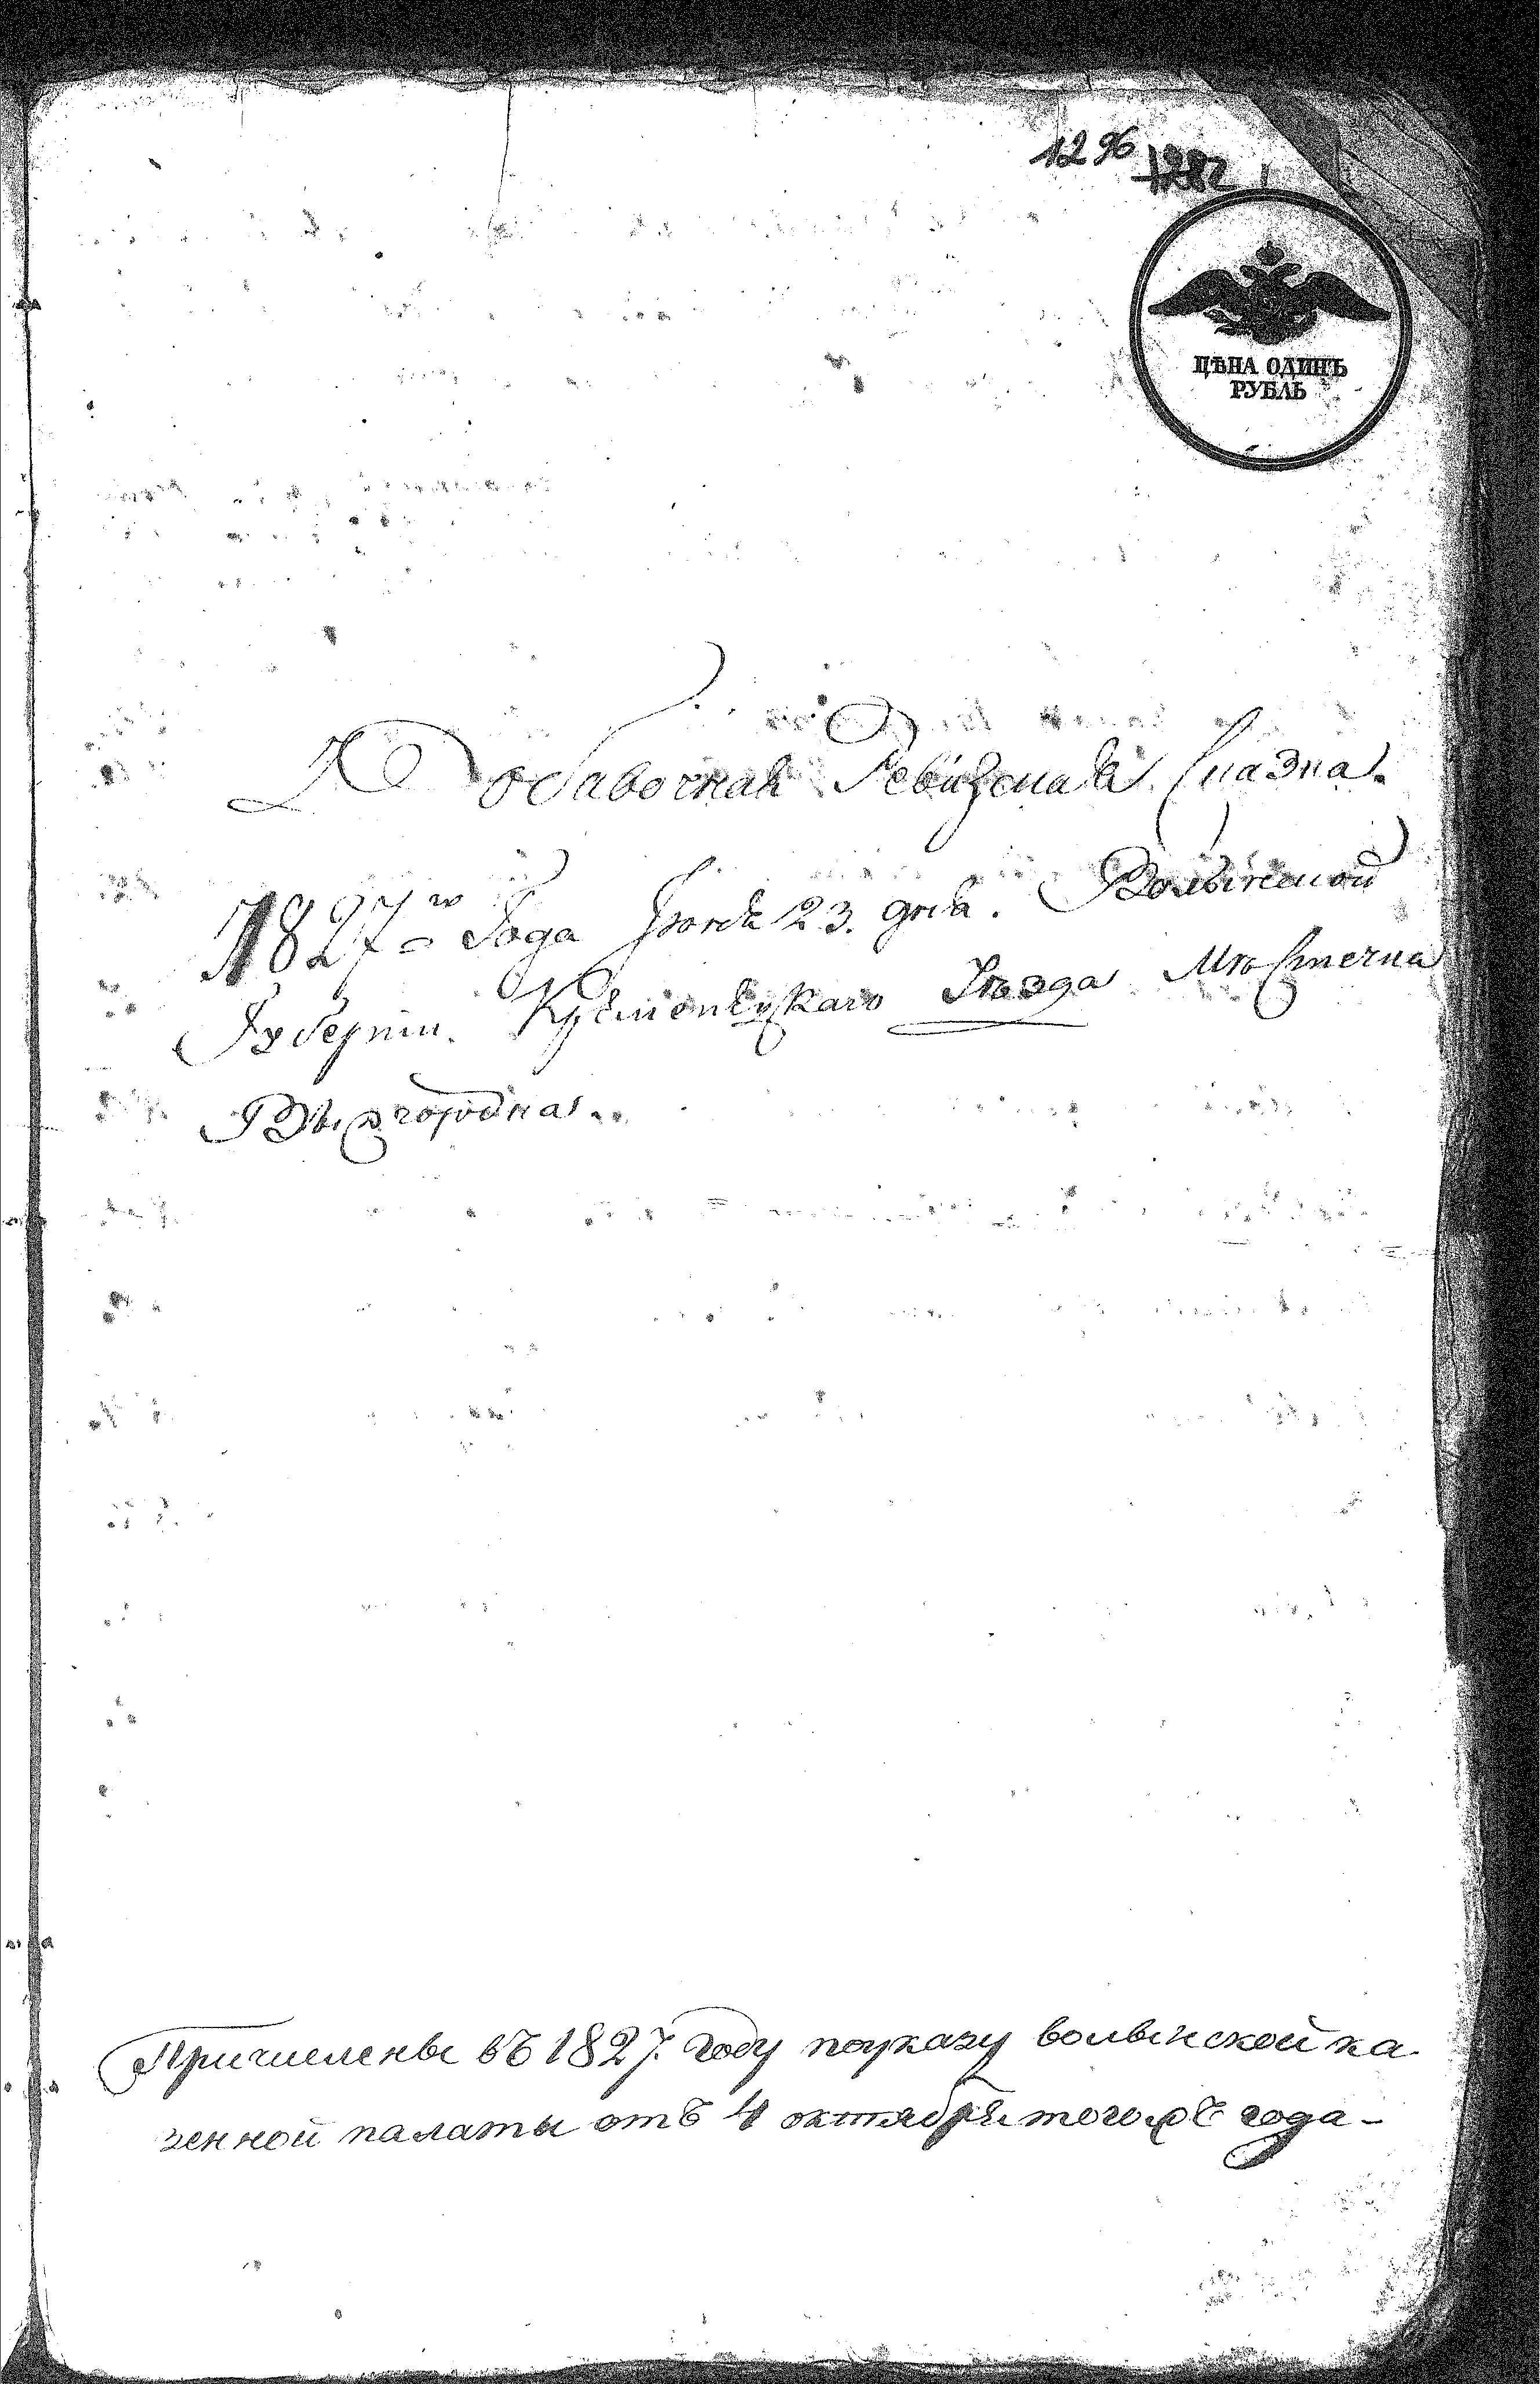 1296
1282
ЦѢНА ОДИНЪ
РУБЛЬ
Добавочная Ревизская Сказка.
1827го Года Июня 23. дня. Волынской
Губернiи. Кременецкаго Уѣзда Мѣстечка
Вышгородка.
Причислены въ 1827. году поуказу волынской ка
зенной палаты отъ 4 октября тогожъ года -